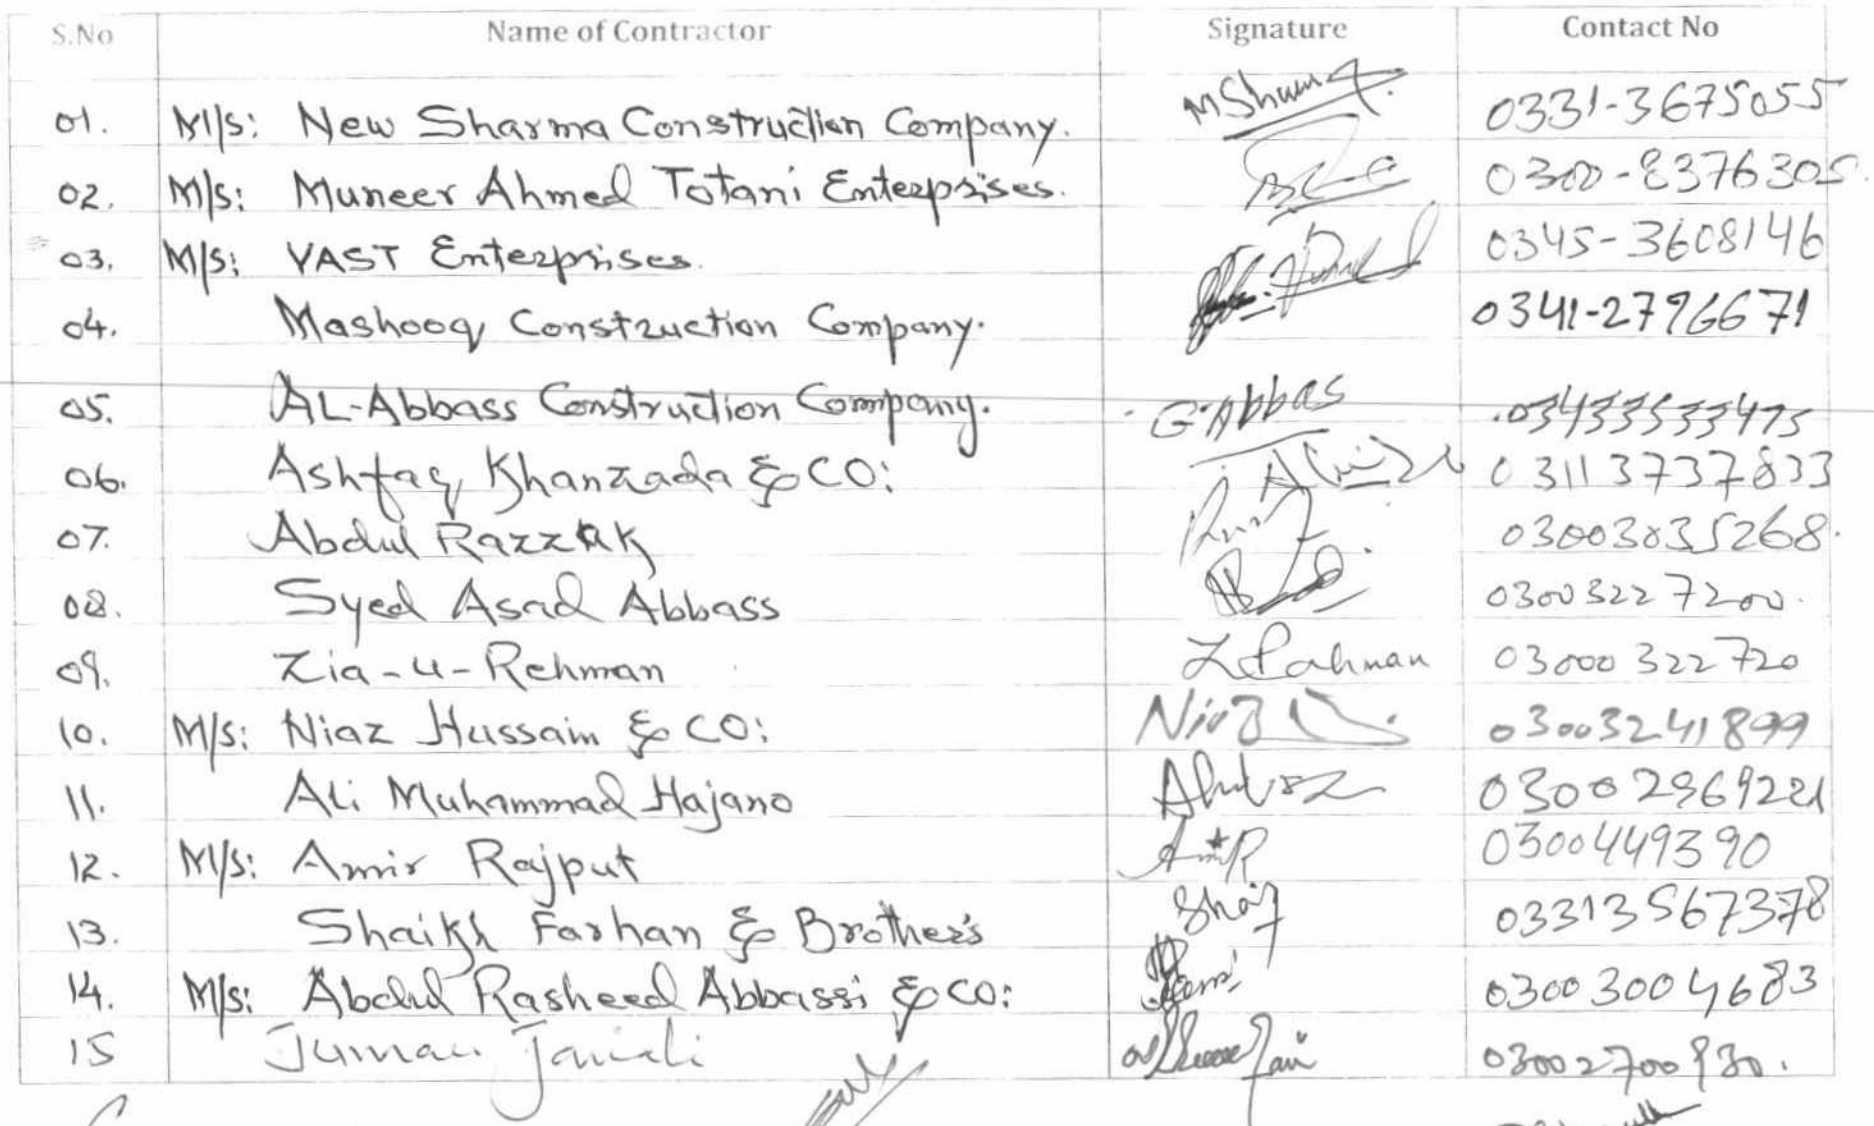 S.No Name of Contractor Signature Contact No
01. M/s: New Sharma Construction Company. M Sharma 0331-3675055
02. M/s: Muneer Ahmed Totani Enterprises. 0300-8376305.
03. M/s: VAST Enterprises. 0345-3608146
04. Mashooq Construction Company. 0341-2796671
05. AL-Abbass Construction Company. G.Abbas 03433533475
06. Ashfaq Khanzada & CO: 03113737833
07. Abdul Razzak 03003035268.
08. Syed Asad Abbass 03003227200.
09. Zia-u-Rehman Z Rahman 03000322720
10. M/s: Niaz Hussain & CO: Niaz 03003241899
11. Ali Muhammad Hajano
12. M/s: Amir Rajput 0300449390
13. Shaikh Farhan & Brother's 03313567378
14. M/s: Abdul Rasheed Abbassi & CO: 03003004683
15 Juman Jamali 03002700930.